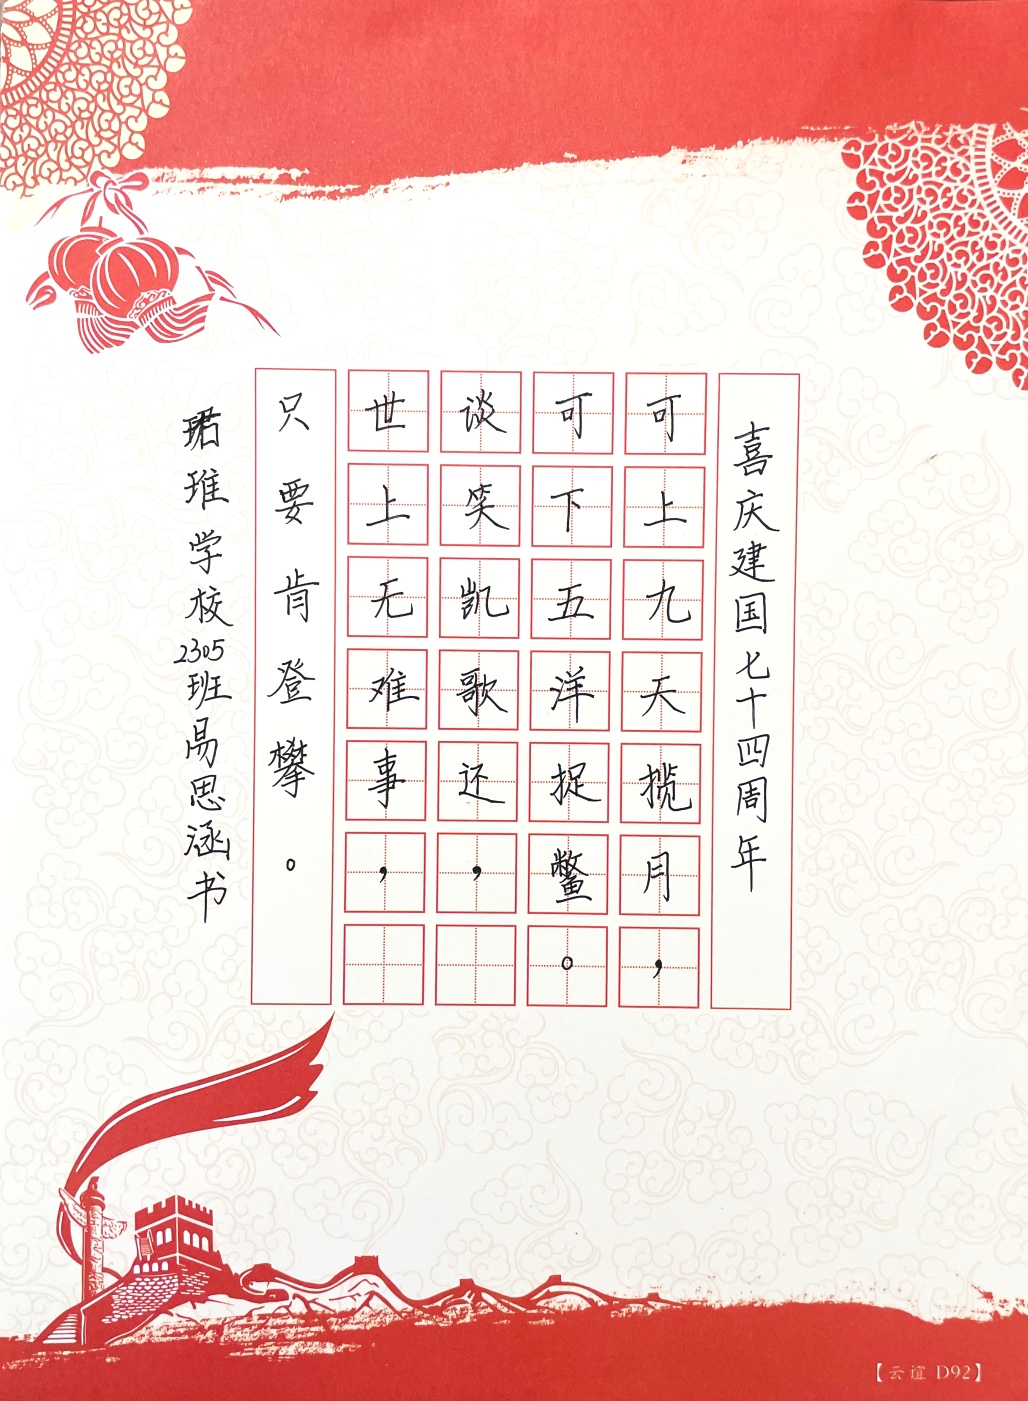 喜庆建国七十四周年
可上九天揽月，
可下五洋捉鳖。
谈笑凯歌还，
世上无难事，
只要肯登攀。
珺琟学校2305班易思涵书
【云谊 D92】